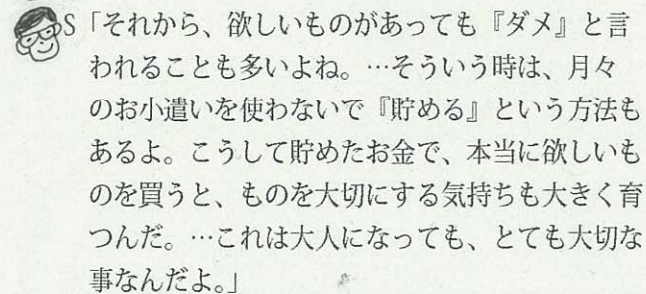 S「それから、欲しいものがあっても『ダメ』と言
われることも多いよね。…そういう時は、月々
のお小遣いを使わないで『貯める』という方法も
あるよ。こうして貯めたお金で、本当に欲しいも
のを買うと、ものを大切にする気持ちも大きく育
つんだ。…これは大人になっても、とても大切な
事なんだよ。」